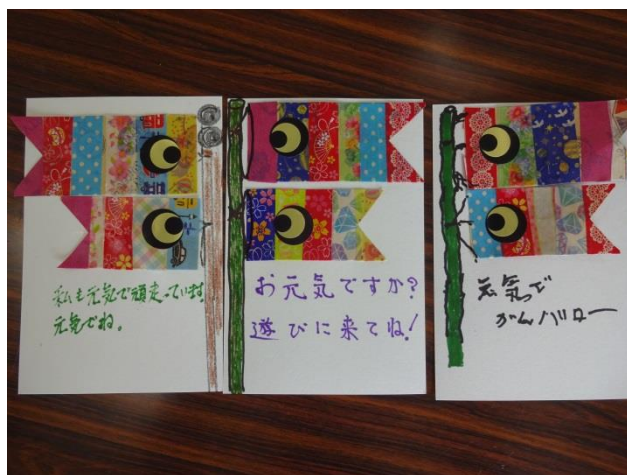 私も元気で頑走っています
元気でね。
お元気ですか?
遊びに来てね!
元気で
がんバロー